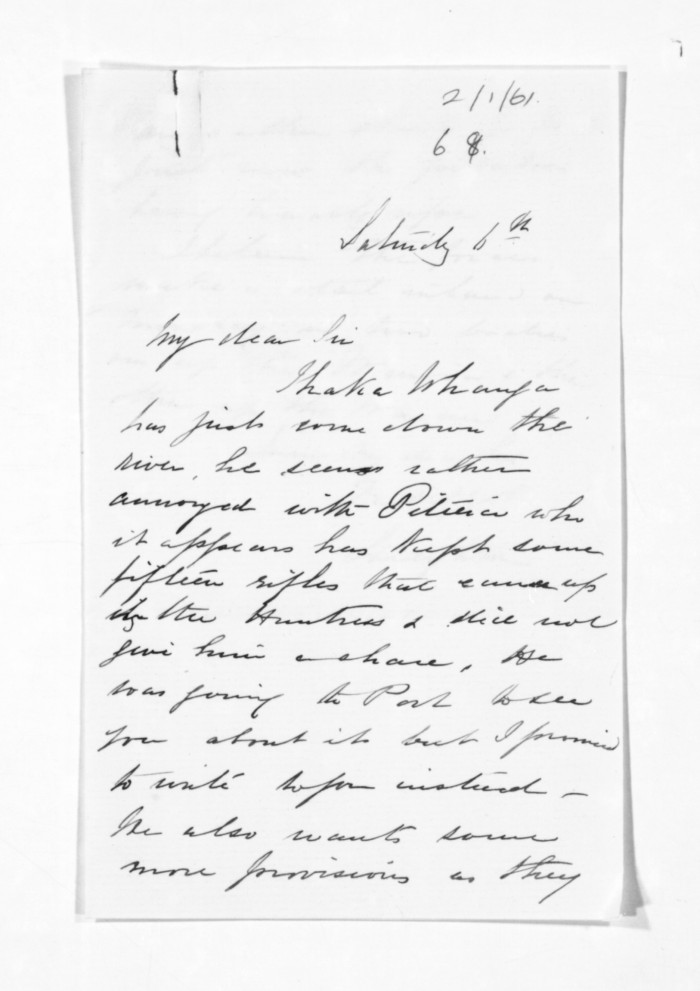 2/1/61.
6 8.
Saturdy 6th
My dear Sir
Ihaka Whanga
has just come down the
river, he seems rather
annoyed with Pitiera who
it appears has kept some
fifteen rifles that came up
in the Huntress & did not
give him a share, He
was going to Port to see
you about it but I promised
to write to you instead –
He also wants some
more provisions as they